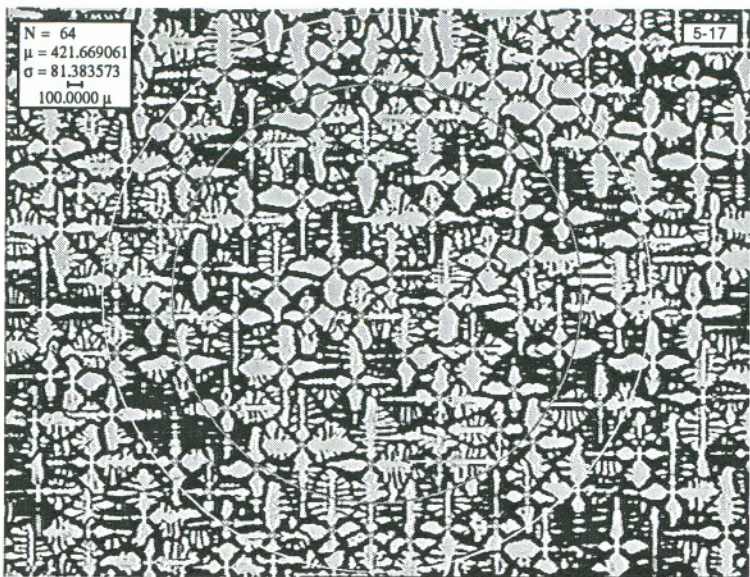 N = 64
μ = 421.669061
σ = 81.383573
100.0000 μ
5-17